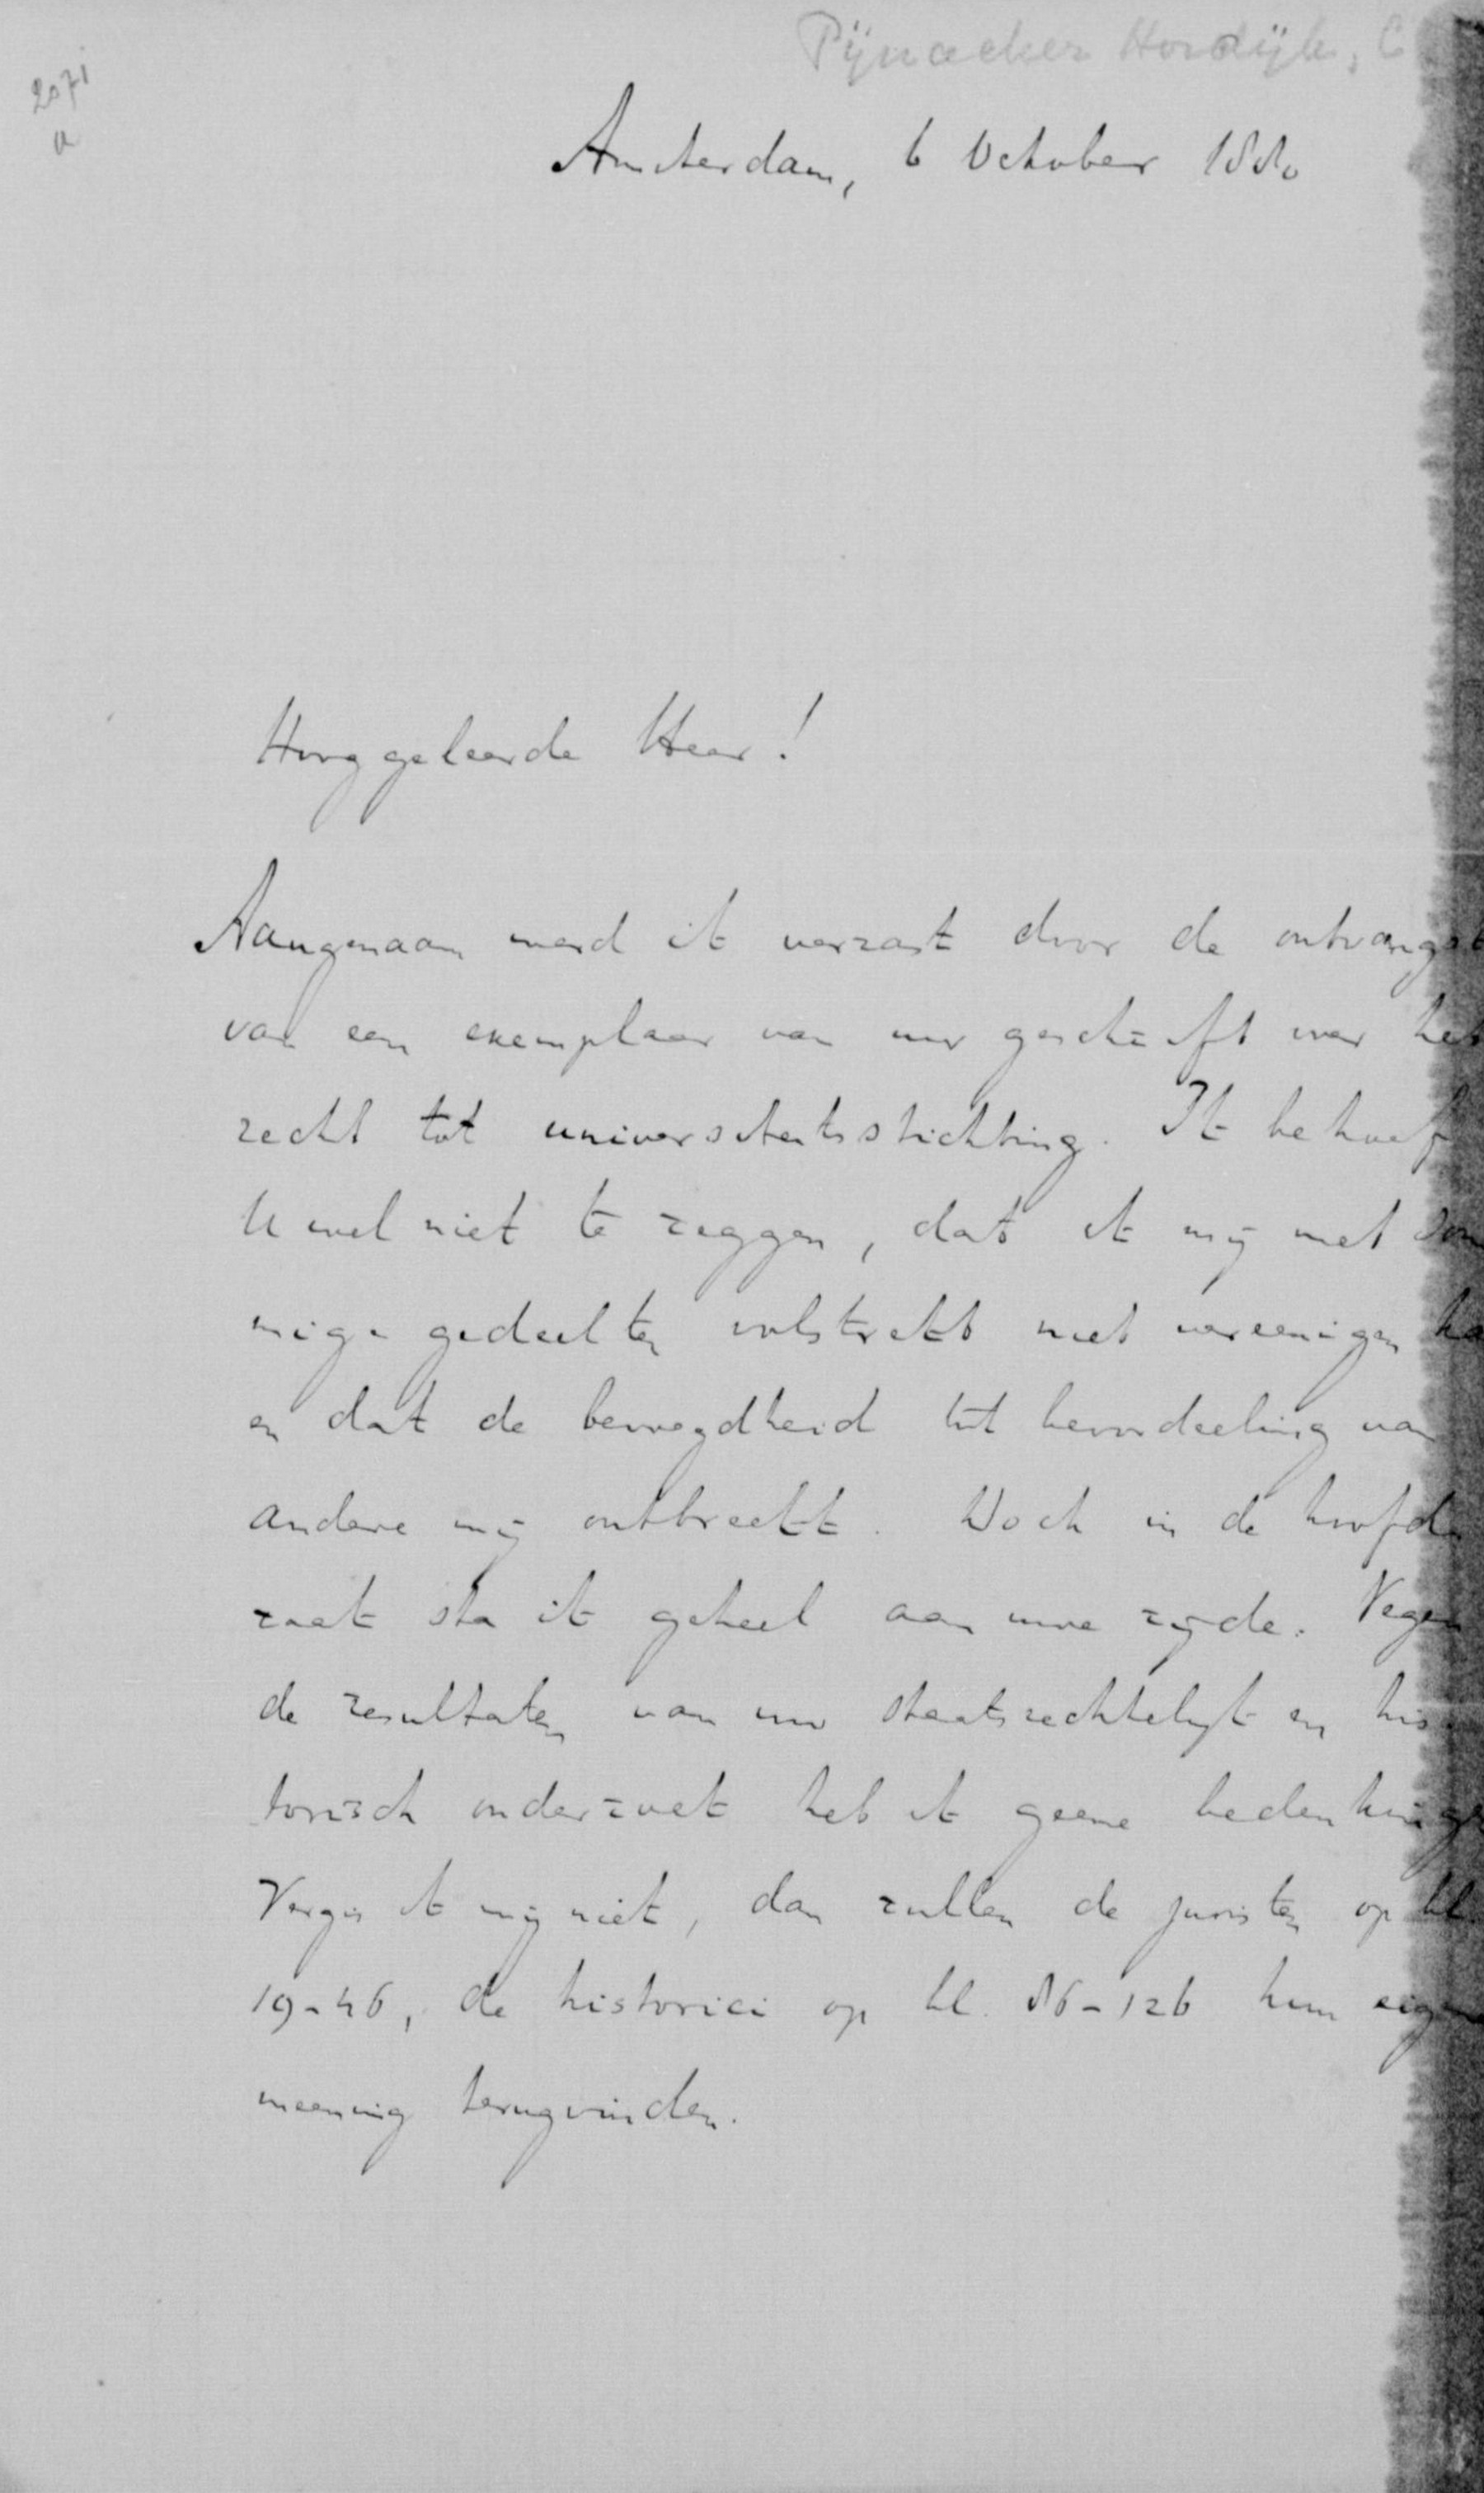 Pÿnacker Hordÿk, C
2071
a
Amsterdam, 6 October 1880
Hooggeleerde Heer!
Aangenaam werd ik verrast door de ontvangst
van een exemplaar van uw geschrift over het
recht tot universiteitsstichting. Ik behoef
U wel niet te zeggen, dat ik mij met som
mige gedeelten volstrekt niet vereenigen ka
en dat de bevoegdheid tot beoordeeling van
andere mij ontbreekt. Doch in de hoofd
zaak sta ik geheel aan uwe zijde. Tegen
de resultaten van uw staatsrechtelijk en his
torisch onderzoek heb ik geene bedenking
Vergis ik mij niet, dan zullen de juristen op bl.
19-46, de historici op bl. 86-126 hun eigen
meening terugvinden.